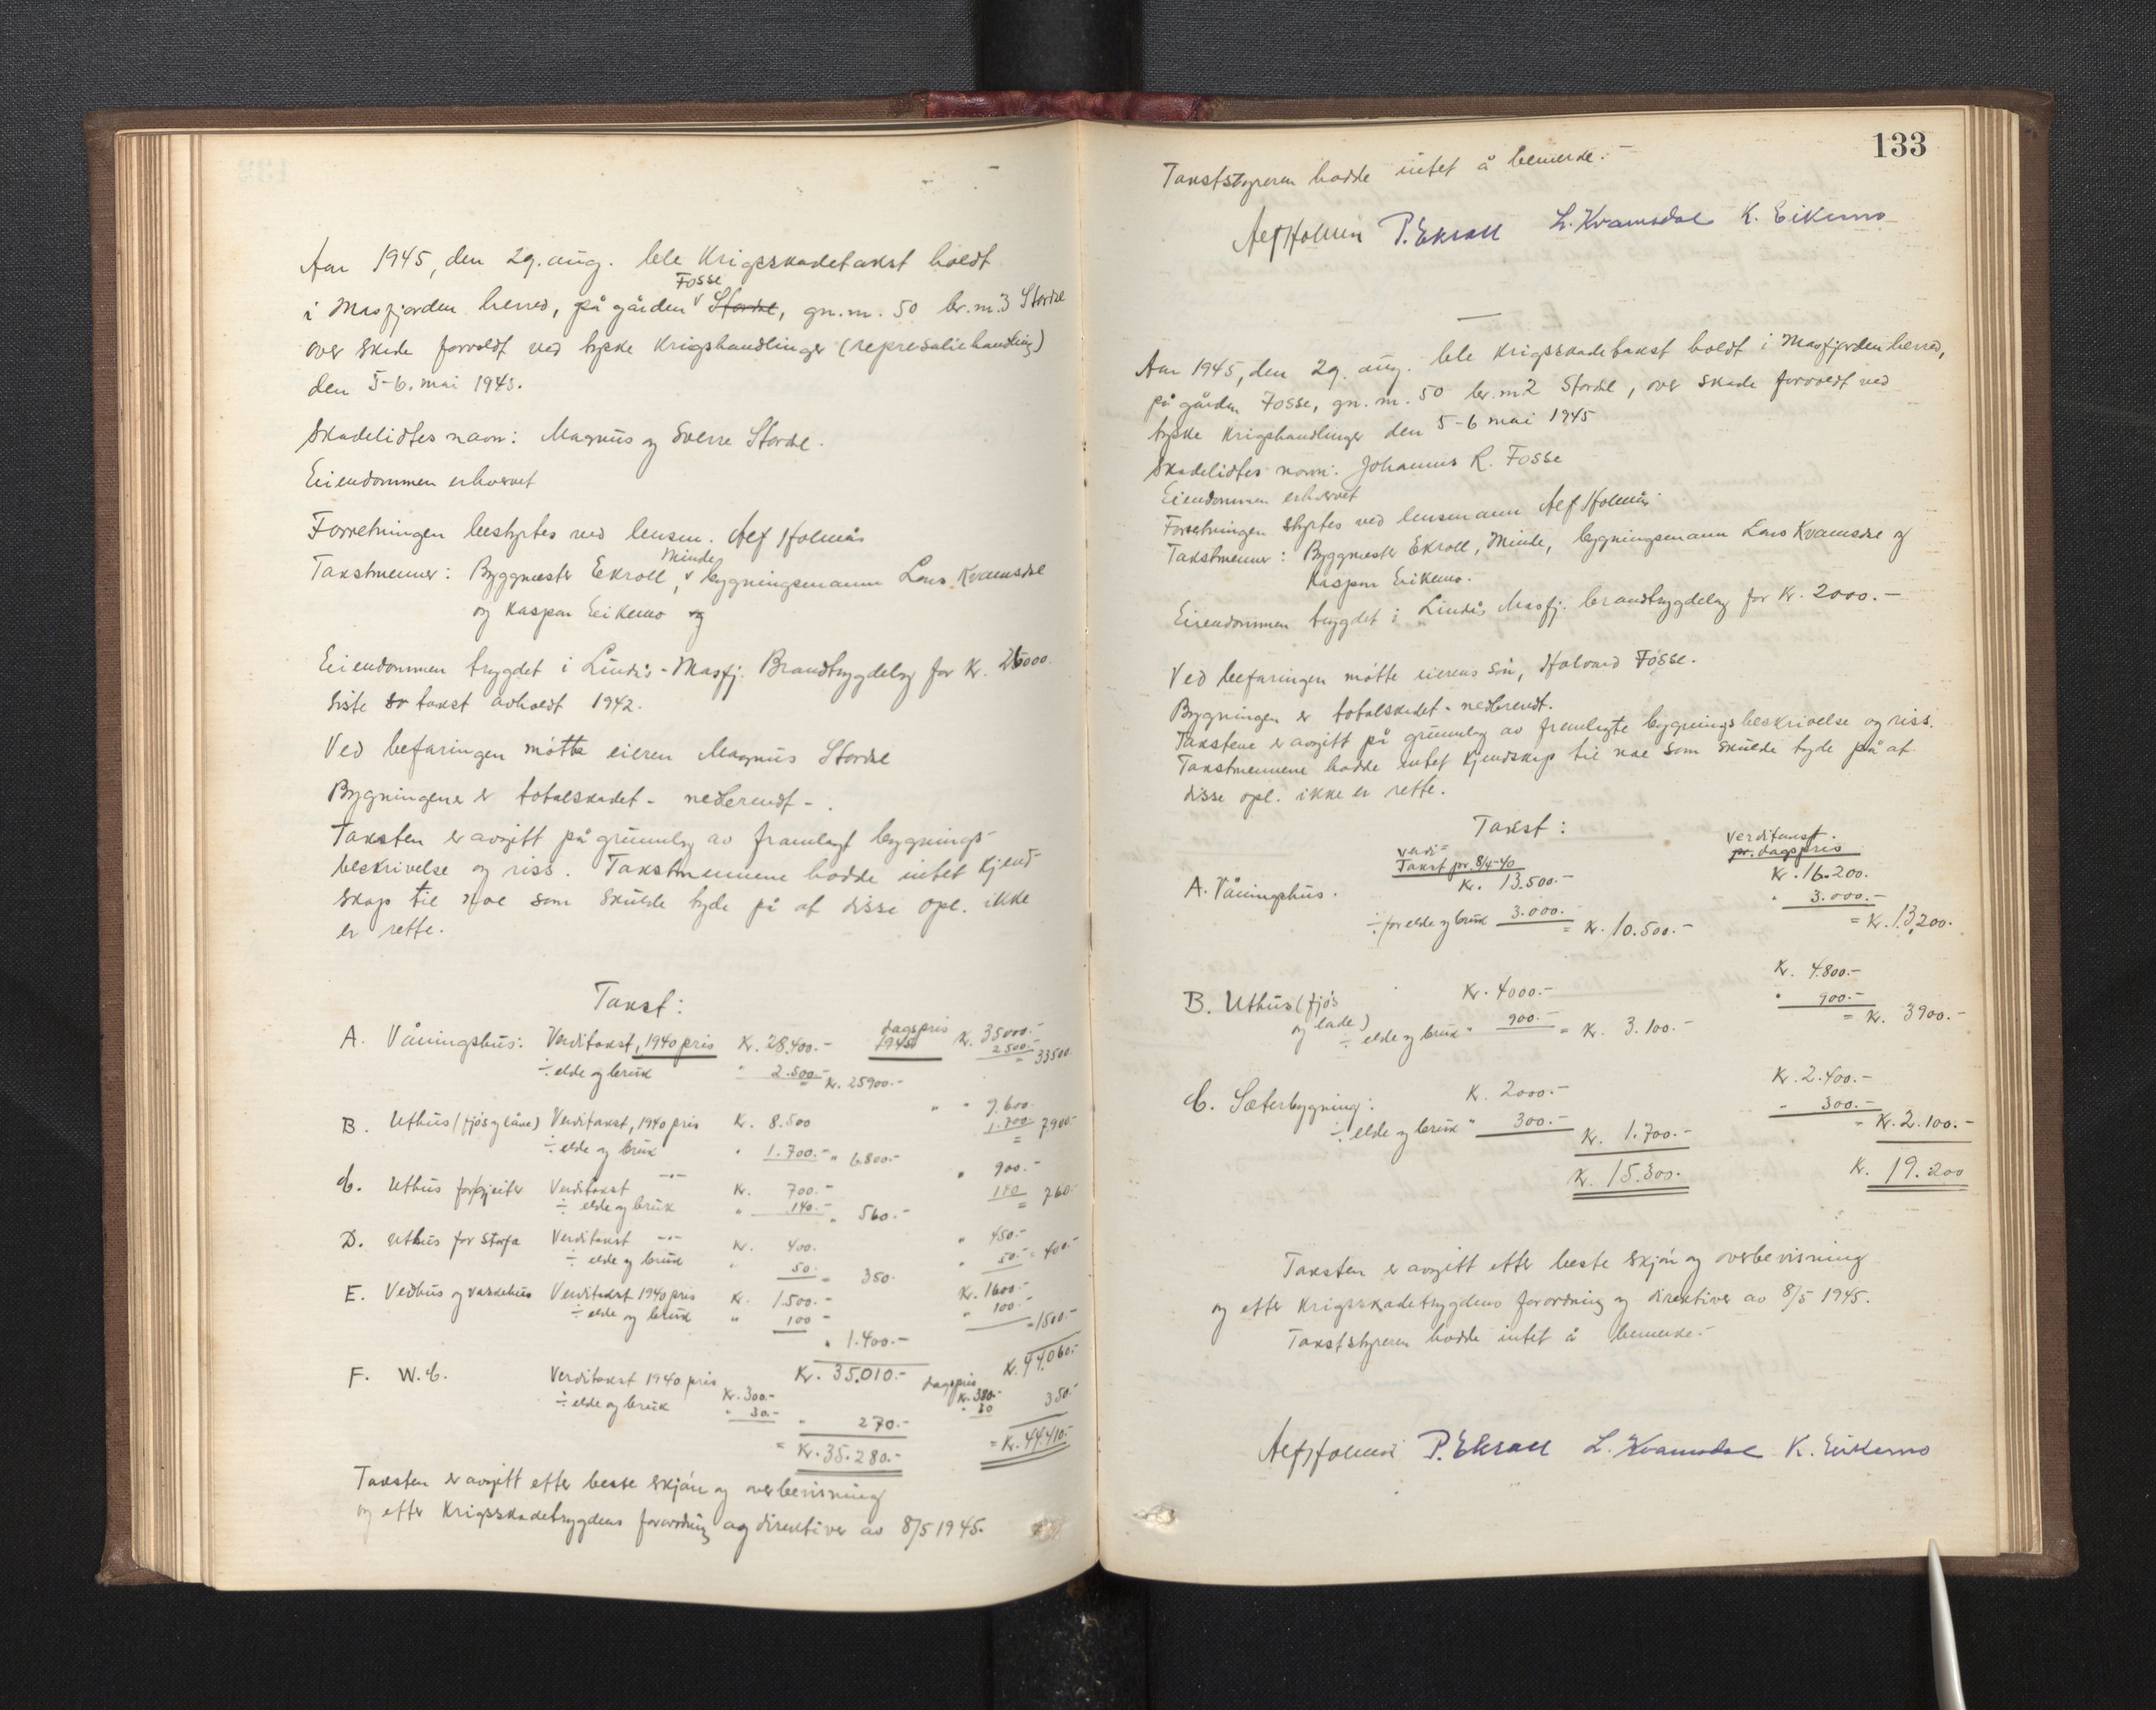 Aar 1945, den 29. aug. ble Krigsskadetakst holdt
i Masfjorden herred, på gården Fosse Stordal, gn. nr. 50 br. nr. 3 Stordal
over skade forvoldt ved tyske Krigshandlinger (represaliehandling)
den 5-6. mai 1945.
Skadelidtes navn: Magnus og Sverre Stordal.
Eiendommen erhvervet
Forretningen bestyrtes ved lensm. Alf Holmås
Takstmenner: Byggmester Ekroll, Minde, bygningsmann Lars Kvamsdal
og Kaspar Eikemo og
Eiendommen trygdet i Lindås-Masfj. Brandtrygdelag for Kr. 26000
Siste takst avholdt 1942.
Ved befaringen møtte eieren Magnus Stordal
Bygningene er totalskadet - nedbrendt - .
Taksten er avgitt på grunnlag av framlagt bygnings-
beskrivelse og riss. Takstmennene hadde intet kjend-
skap til noe som skulde tyde på at disse opl. ikke
er rette.
Takst:
A. Våningshus: Verditakst, 1940 pris Kr. 28.400.- dagspris 1945 Kr. 35000.-
÷ elde og bruk " 2.500.- = Kr. 25900.- 2500.- = 33500
B. Uthus (fjøs og låve) Verditakst, 1940 pris Kr. 8.500 " " 9.600.
÷ elde og bruk " 1.700.- " 6.800.- 1.700 = 7900-
C. Uthus for gjeiter Verditakst -"- Kr. 700.- " 900.-
÷ elde og bruk " 140.- " 560.- 140 = 760-
D. Uthus for storfe Verditakst -"- Kr. 400. " 450.-
÷ elde og bruk " 50.- " 350.- " 50.- = 400.-
E. Vedhus og vaskehus Verditakst 1940 pris Kr. 1.500.- Kr. 1600.-
÷ elde og bruk " 100 - " 100.- = 1500.-
" 1.400.-
Kr. 35.010.- Kr. 44.060.-
F. W.C. Verditakst 1940 pris Kr. 300.- dagspris Kr. 380.-
÷ elde og bruk " 30.- " 270.- " 30 350.-
= Kr. 35.280.- = Kr. 44.410.-
Taksten er avgitt efter beste skjøn og overbevisning
og efter Krigsskadetrygdens forordning og direktiver av 8/5 1945.
133
Takststyreren hadde intet å bemerke.-
Alf Holmås P. Ekroll L. Kvamsdal K. Eikemo
Aar 1945, den 29. aug. ble Krigsskadetakst holdt i Masfjorden herred,
på gården Fosse, gn. nr. 50 br. nr 2 Stordal, over skade forvoldt ved
tyske Krigshandlinger den 5-6 mai 1945
Skadelidtes navn: Johannes R. Fosse
Eiendommen erhvervet
Forretningen styrtes ved lensmann Alf Holmås
Takstmenner: Byggmester Ekroll, Minde, bygningsmann Lars Kvamsdal og
Kaspar Eikemo.
Eiendommen trygdet i Lindås Masfj. brandtrygdelag for Kr. 2000.-
Ved befaringen møtte eierens søn, Halvard Fosse.
Bygningen er totalskadet - nedbrendt.
Takstene er avgitt på grunnlag av fremlagte bygningsbeskrivelse og riss.
Takstmennene hadde intet kjendskap til noe som skulde tyde på at
disse opl. ikke er rette.
Takst:
Verdi- Takst pr. 8/4-40 verditakst. pr. dagspris
A. Våningshus. Kr. 13.500.- Kr. 16.200.
÷ for elde og bruk 3.000.- = Kr. 10.500.- " 3.000.- = Kr. 13,200.
B. Uthus (fjøs Kr. 4000.- Kr. 4.800.-
og lade) ÷ elde og bruk " 900.- = Kr. 3.100.- " 900.- = Kr. 3900.-
C. Sæterbygning: Kr. 2000.- Kr. 2.400.-
÷ elde og bruk " 300.- Kr. 1.700.- " 300.- = Kr. 2.100.-
Kr. 15.300.- Kr. 19.200
Taksten er avgitt efter beste skjøn og overbevisning
og efter Krigsskadetrygdens forordning og direktiver av 8/5 1945.
Takststyreren hadde intet å bemerke.-
Alf Holmås P. Ekroll L. Kvamsdal K. Eikemo